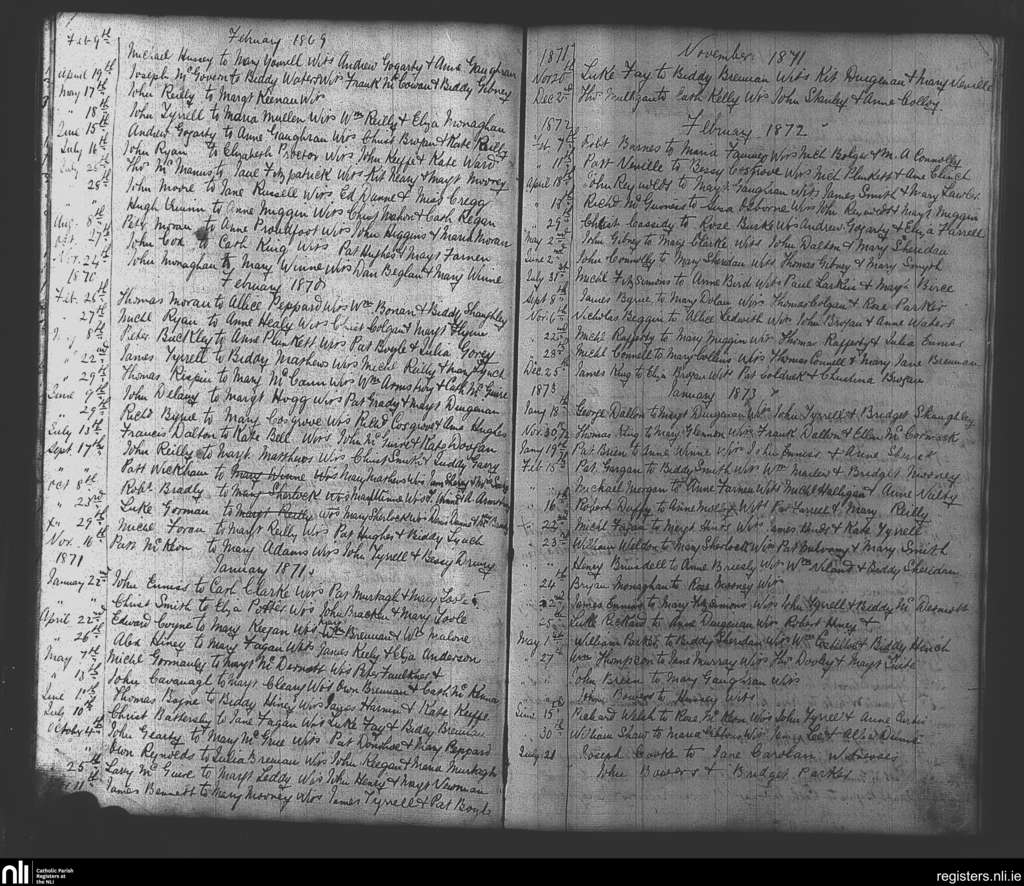 February 1869
Feb 9th Michael Hussey to Mary Yourell Wits Andrew Gogarty & Anne Gaughran
April 19th Joseph McGovern to Biddy Waters Wits Frank McCowan & Biddy Gibney
May 17th John Reilly to Margt Keenan Wit
" 18th John Tyrrell to Maria Mullen Wits Wm Reilly & Eliza Monaghan
June 15th Andrew Gogarty to Anne Gaughran Wits Christ Brogan & Kate Reilly
July 16th John Ryan to Elizabeth Proctor Wits John Keeffe & Kate Ward
July 25th Thos McManus to Jane Fitzpatrick Wits Kit Neary & Margt Mooney
" 25th John Moore to Jane Russell Wits Ed Dunne & Miss Gregg
Hugh Quinn to Anne Miggin Wits Christ Mahon & Cath Regan
Aug. 8th Peter Moran to Anne Proudfoot Wits John Higgins & Maria Moran
Oct. 27th John Cox to Cath King Wits Pat Hughes & Margt Farnen
Nov. 24th John Monaghan to Mary Winne Wits Dan Beglan & Mary Winne
1870 February 1870
Feb. 26th Thomas Moran to Allice Peppard Wits Wm Bonan & Biddy Shaughley
" 27th Michl Ryan to Anne Healy Wits Christ Colgan & Margt Flynn
" 8th Peter Buckley to Anne Plunkett Wits Pat Boyle & Julia Gorey
" 22nd James Tyrrell to Biddy Mathews Wits Michl Reilly & Mary Lynch
" 29th Thomas Rispin to Mary McCann Wits Wm Armstrong & Cath McGuire
June 9th John Delany to Margt Hogg Wits Pat Grady & Margt Duigenan
" 29th Richd Byrne to Mary Cosgrove Wits Richd Cosgrove & Ann Hughes
July 13th Francis Dalton to Kate Bell Wits John McGuire & Kate Doogan
Sept 17th John Reilly to Margt Matthews Wits Christ Smith & Juddy Geery
" " Patt Wickham to Mary Winne Wits Mary Mathews Wits
Oct 8th Robt Bradly to Mary Sherlock Wits Mary Winne Wits
" 23rd Luke Gorman to Margt Reilly Wits Mary Sherlock Wits
" 29th Michl Foran to Margt Reilly Wits Pat Hughes & Biddy Lynch
Nov. 16th Patt McKeon to Mary Adams Wits John Tyrrell & Bessy Drewry
1871 January 1871
January 22nd John Ennis to Cath Clarke Wits Pat Murtagh & Mary Toole
" " Christ Smith to Eliza Potter Wits John Bracken & Mary Toole
April 22nd Edward Coyne to Mary Keegan Wits Brennan & Wm Malone
" 26th Alex Hiney to Mary Fagan Wits James Reilly & Eliza Anderson
May 7th Michl Gormanly to Margt McDermott Wits Peter Faulkner &
" 18th John Cavanagh to Margt Cleary Wits Owen Brennan & Cath McKenna
June 11th Thomas Payne to Biddy Hiney Wits James Harnen & Kate Keeffe
July 10th Christ Battersby to Jane Fagan Wits Luke Fay & Biddy Brennan
October 4th John Gearty to Mary McGuire Wits Pat Donohoe & Mary Peppard
" Owen Reynolds to Julia Brennan Wits John Keegan & Maria Murtagh
" 25th Larry McGuire to Margt Leddy Wits John Henry & Margt Newman
" 11th James Bennett to Mary Mooney Wits James Tyrrell & Pat Boyle
1871 November 1871
Nov 20th Luke Fay to Biddy Brennan Wits Kit Duigenan & Mary Neville
Dec 2nd Thos Mulligan to Cath Kelly Wits John Stanley & Anne Colloy
1872 February 1872
Feb 7th Robt Barnes to Maria Fanney Wits Michl Bolger & M. A Connolly
" 11th Patt Neville to Bessy Cosgrove Wits Michl Plunkett & Ane Clinch
April 18th John Reynolds to Mary Gaughran Wits James Smith & Mary Lawlor
" 18th Richd McGuiness to Lusia Osborne Wits John Reynolds & Margt Miggin
" 29th Christ Cassidy to Rose Burke Wits Andrew Gogarty & Eliza Farrell
May 2nd John Gibney to Mary Clarke Wits John Dalton & Mary Sheridan
June 2nd John Connolly to Mary Sheridan Wits Thomas Gibney & Mary Smyth
July 31st Michl Fitzsimons to Anne Bird Wits Paul Larkin & Pierce
Sept 8th James Byrne to Mary Dolan Wits Thomas Colgan & Rose Parker
Nov. 6th Nicholas Beggin to Allice Ledwith Wits John Brogan & Anne Waters
" 22nd Michl Rafferty to Mary Miggin Wits Thomas Rafferty & Julia Connor
" 28th Michl Connell to Mary Collins Wits Thomas Connell & Mary Jane Brennan
Dec 25th James King to Eliza Brogan Wits Pat Coldrick & Christina Brogan
1873 January 1873
Jany 18th George Dalton to Margt Duigenan Wits John Tyrrell & Bridget Shaughley
Nov. 30/72 Thomas King to Mary Glennon Wits Frank Dalton & Ellen McCormack
Jany 19th Pat Brien to Anne Winne Wits John Connor & Anne Sherock
Feb 15th Pat Gargan to Biddy Smith Wits Wm Masters & Bridget Mooney
" Michael Morgan to Anne Farnen Wits Michl Halligan & Anne Nulty
" 16th Robert Duffy to Anne Wits Pat Farrell & Mary Reilly
" 22nd Michl Fagan to Margt Hinds Wits James Hinds & Kate Tyrrell
" 23rd William Weldon to Mary Sherlock Wits Pat Mulvanny & Mary Smith
" Henry Brunsdell to Anne Brierly Wits Wm & Biddy Sheridan
" 24th Bryan Monaghan to Rose Mooney Wits
" 27th James Ennis to Mary Fitzsimons Wits John Tyrrell & Biddy McDermott
" 25th Luke Reckard to Anne Duigenan Wits Robert Hiney &
May 7th William Parker to Biddy Sheridan Wits Wm & Biddy Heach
" 27 Wm Thompson to Jane Murray Wits Thos Dooley & Margt
" John Breen to Mary Gaughran Wits
" John Bowers to Hussey Wits
June 15th Richard Walsh to Rose McKeon Wits John Tyrrell & Anne Curtis
" 30th William Shaw to Maria Gibbons Wits James Lee & Alice Dunne
July 21 Joseph Cooke to Jane Carolan Witnesses
John Bowers & Bridget Parker
nli Catholic Parish
Registers at
the NLI
registers.nli.ie